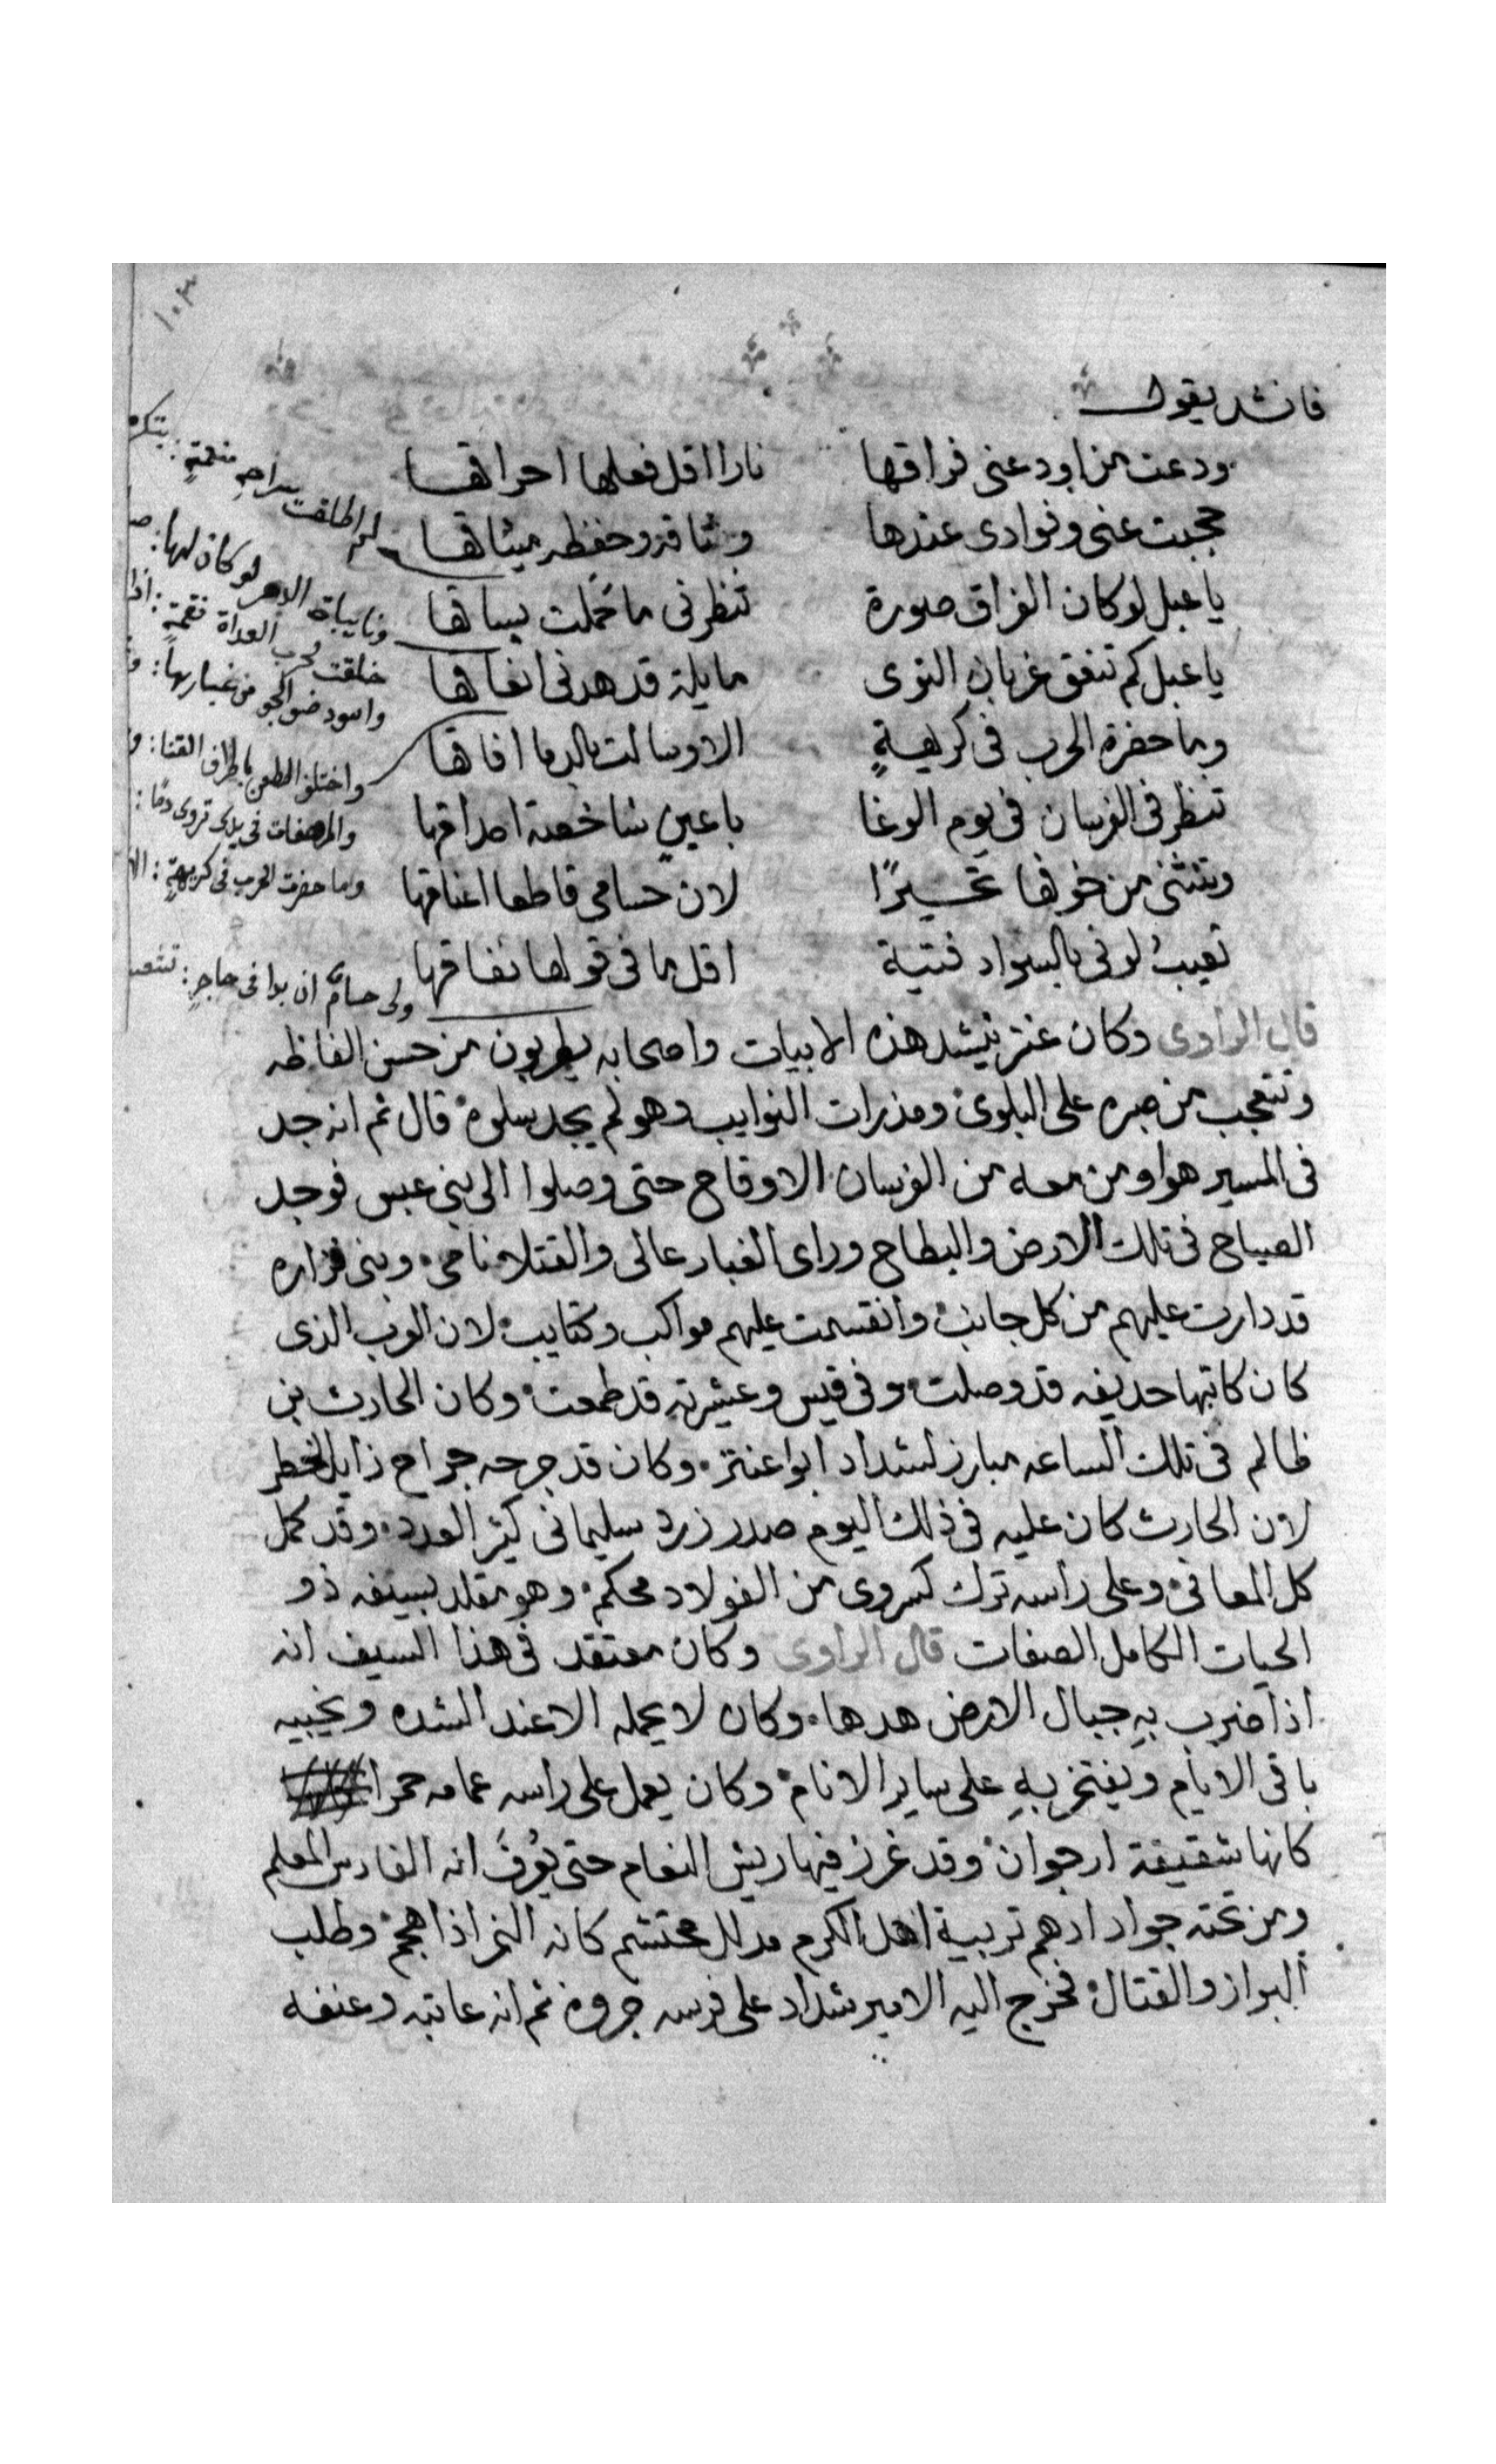 ١٠٣
فانشد يقول
ودعت من اودعنى فراقها نارا اقل فعلها احراقها
حجبت عنى وفوادى عندها وثاقه وحفظه ميثاقها
يا عبل لو كان الفراق صورة تنظرنى ما تحملت بساقها
يا عبل كم تنفق غربان النوى مايلة قد هدنى انفاقها
وما حضرة الحرب فى كريهةٍ الا وسالت بالدما افاقها
تنظر فى الفرسان فى يوم الوغا باعينٍ شاخصة احداقها
وينثنى من خوفها تحسيرًا لان حسامى قاطعا اعناقها
تعيبُ لونى بالسواد فتية اقل ما فى قولها نفاقها
كم اطلقت براحم منعمةٍ :
ونايباة الدهر لو كان لها :
خلقت لحرب العداة نقمةٍ : اذا
واسود ضو الجو من غبارها :
واختلف الطعن باطراف القنا : و
والمرهفات فى يدى تروى دمًا :
وما حضرت الحرب فى كريهةٍ : الا
ولى حسامٌ ان بوا فى حاجرٍ :
قال الراوى وكان عنتر ينشد هذه الابيات واصحابه يطربون من حسن الفاظه
وتتعجب من صبره على البلوى ومذرات النوايب وهو لم يجد سلوه قال ثم انه جد
فى المسير هوا ومن معه من الفرسان الاوقاح حتى وصلوا الى بنى عبس فوجد
الصياح فى تلك الارض والبطاح وراى الغبار عالى والقتلا نامى وبنى فزاره
قد دارت عليهم من كل جانب وانقسمت عليهم مواكب وكتايب لان العرب الذى
كان كاتبها حديفه قد وصلت وفى قيس وعشيرته قد طمعت وكان الحارث بن
ظالم فى تلك الساعه مبارز لشداد ابوا عنتر وكان قد جرحه جراح زايد الخطر
لان الحارث كان عليه فى ذلك اليوم صدر زرد سليمانى كثير العدد وقد كمل
كل المعانى وعلى راسه ترك كسروى من الفولاد محكم وهو مقلد بسيفه ذو
الحيات الكامل الصفات قال الراوى وكان معتقد فى هذا السيف انه
اذا ضرب بهِ جبال الارض هدها وكان لا يحمله الا عند الشده ويخبيه
باقى الايام ويفتخر بهِ على ساير الانام وكان يعمل على راسه عمامه حمرا
كانها شقيقة ارجوان وقد غرز فيها ريش النعام حتى يُعرفَ انه الفارس المعلم
ومن تحته جواد ادهم تربية اهل الكرم مدلل محتشم كانه النمر اذا هجم وطلب
البراز والقتال فخرج اليه الامير شداد على فرسه جروه ثم انه عاتبه وعنفه